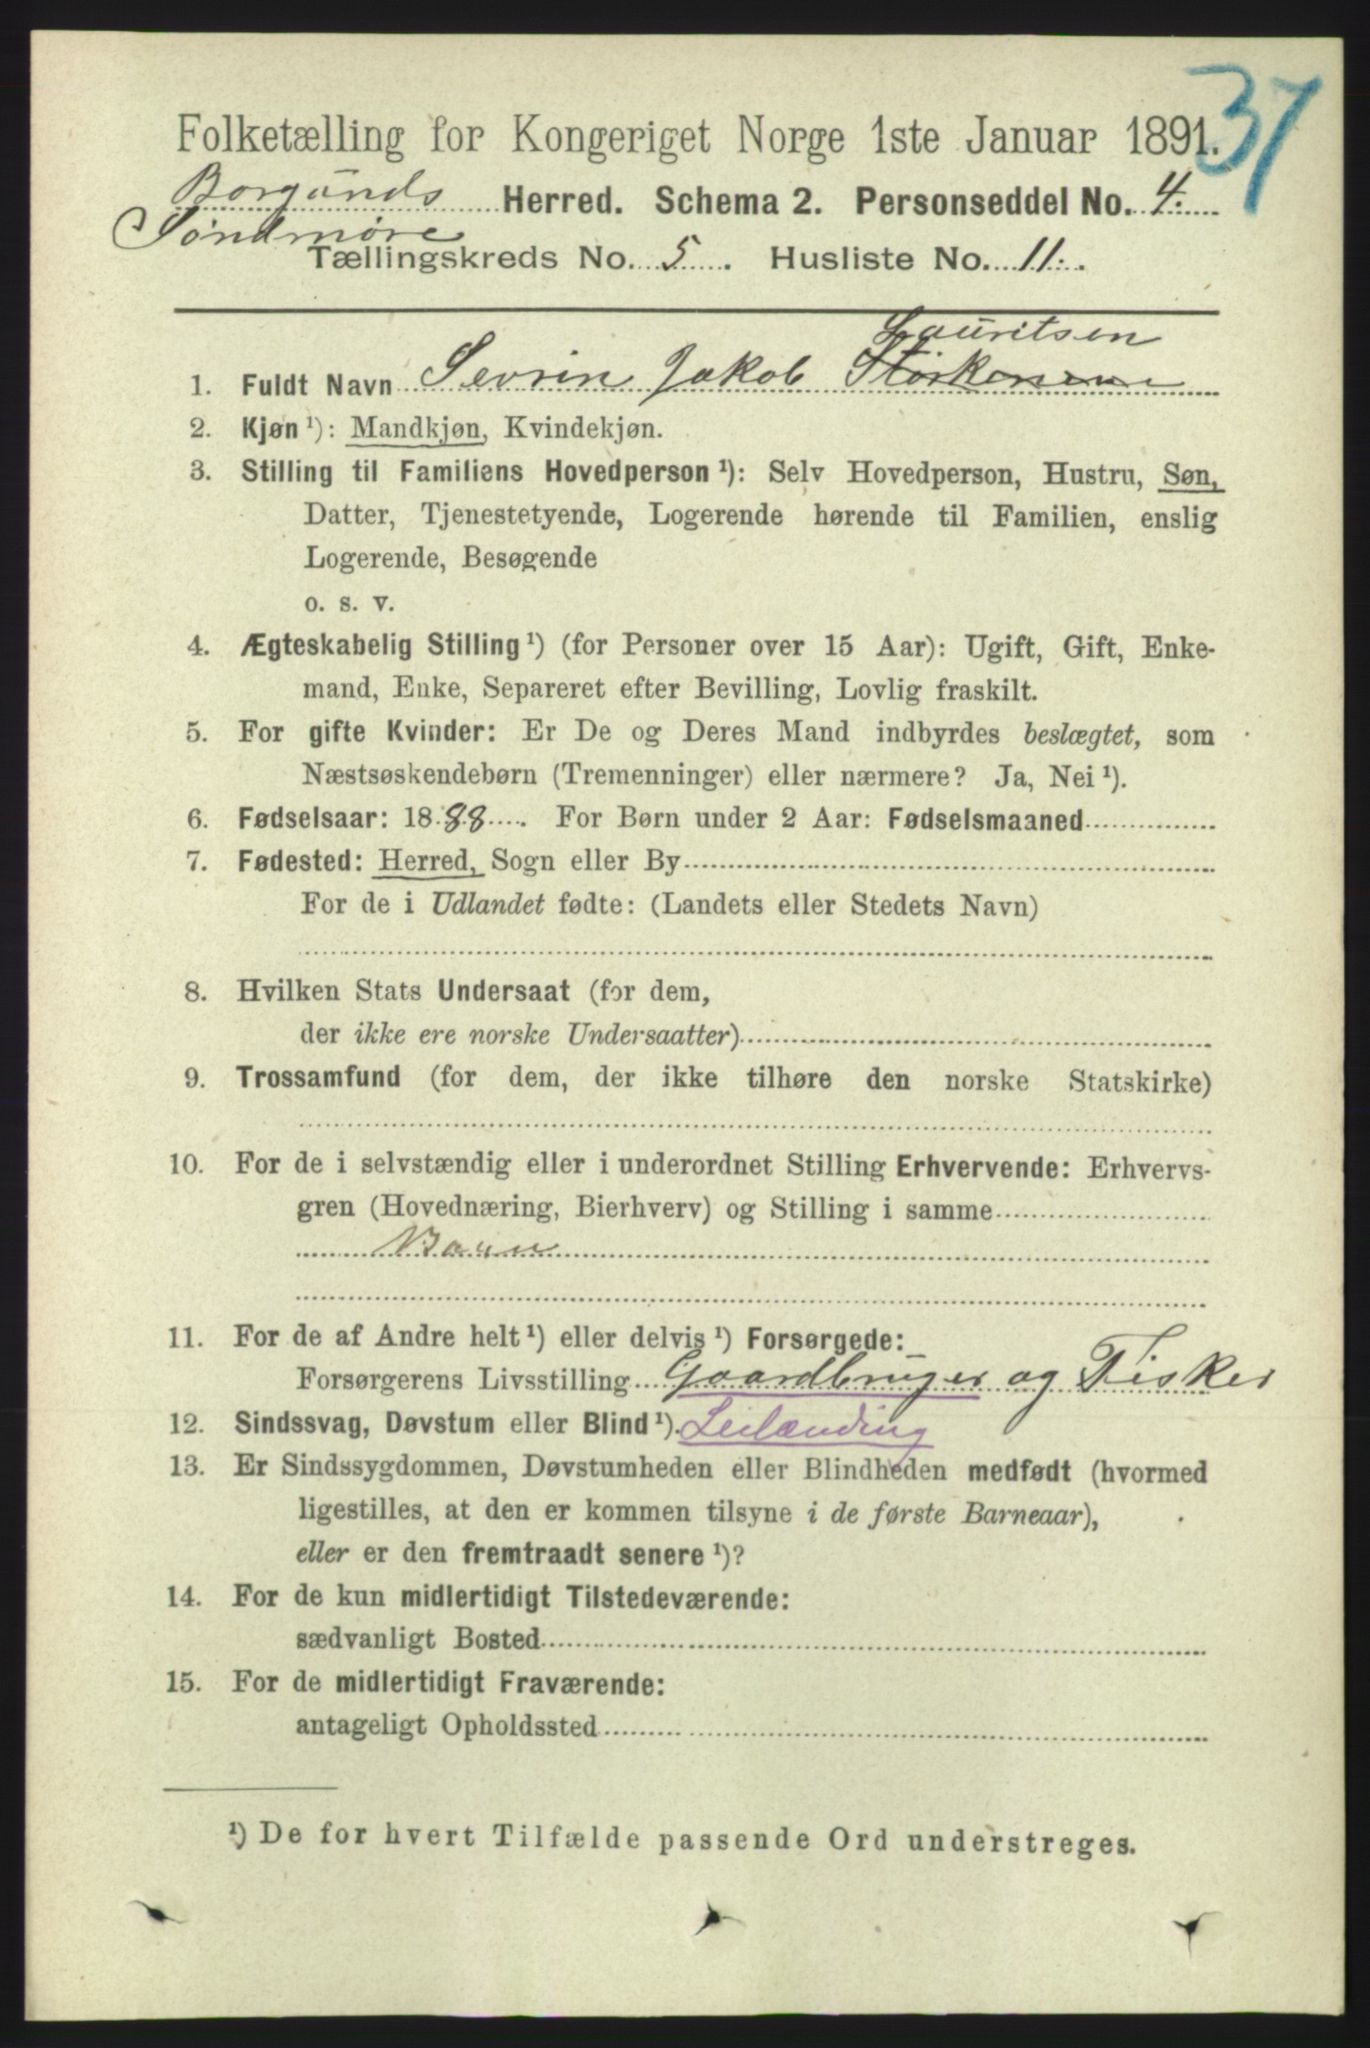 37
Folketælling for Kongeriget Norge 1ste Januar 1891.
Borgunds Herred. Schema 2. Personseddel No. 4.
Søndmøre
Tællingskreds No. 5. Husliste No. 11.
Lauritsen
1. Fuldt Navn Sevrin Jakob
2. Kjøn ¹): Mandkjøn, Kvindekjøn.
3. Stilling til Familiens Hovedperson ¹): Selv Hovedperson, Hustru, Søn,
Datter, Tjenestetyende, Logerende hørende til Familien, enslig
Logerende, Besøgende
o. s. v.
4. Ægteskabelig Stilling ¹) (for Personer over 15 Aar): Ugift, Gift, Enke-
mand, Enke, Separeret efter Bevilling, Lovlig fraskilt.
5. For gifte Kvinder: Er De og Deres Mand indbyrdes beslægtet, som
Næstsøskendebørn (Tremenninger) eller nærmere? Ja, Nei ¹).
6. Fødselsaar: 1888. For Børn under 2 Aar: Fødselsmaaned
7. Fødested: Herred, Sogn eller By
For de i Udlandet fødte: (Landets eller Stedets Navn)
8. Hvilken Stats Undersaat (for dem,
der ikke ere norske Undersaatter)
9. Trossamfund (for dem, der ikke tilhøre den norske Statskirke)
10. For de i selvstændig eller i underordnet Stilling Erhvervende: Erhvervs-
gren (Hovednæring, Bierhverv) og Stilling i samme
Barn
11. For de af Andre helt ¹) eller delvis ¹) Forsørgede:
Forsørgerens Livsstilling Gaardbruger og Fisker
12. Sindssvag, Døvstum eller Blind ¹). Leilænding
13. Er Sindssygdommen, Døvstumheden eller Blindheden medfødt (hvormed
ligestilles, at den er kommen tilsyne i de første Barneaar),
eller er den fremtraadt senere ¹)?
14. For de kun midlertidigt Tilstedeværende:
sædvanligt Bosted
15. For de midlertidigt Fraværende:
antageligt Opholdssted
¹) De for hvert Tilfælde passende Ord understreges.